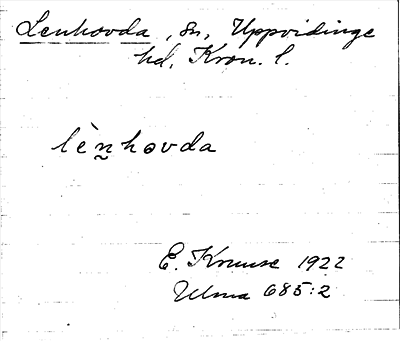 Lenhovda, sn, Uppvidinge
hd, Kron. l.
lèn̰hovda
E. Kruuse 1922
Ulma 685:2